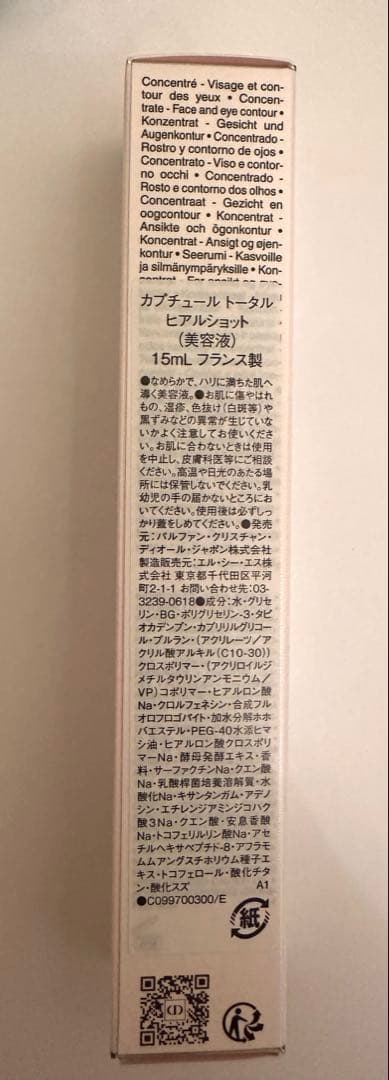 Concentré - Visage et con-
tour des yeux • Concen-
trate - Face and eye contour •
Konzentrat - Gesicht und
Augenkontur • Concentrado -
Rostro y contorno de ojos •
Concentrato - Viso e contor-
no occhi • Concentrado -
Rosto e contorno dos olhos •
Concentraat - Gezicht en
oogcontour • Koncentrat -
Ansikte och ögonkontur •
Koncentrat - Ansigt og øjen-
kontur • Seerumi - Kasvoille
ja silmänympäryksille • Kon-
カプチュール トータル
ヒアルショット
(美容液)
15mL フランス製
●なめらかで、ハリに満ちた肌へ
導く美容液。●お肌に傷やはれ
もの、湿疹、色抜け(白斑等)や
黒ずみなどの異常が生じていな
いかよく注意してお使いくださ
い。お肌に合わないときは使用
を中止し、皮膚科医等にご相談
ください。高温や日光のあたる場
所には保管しないでください。乳
幼児の手の届かないところにお
いてください。使用後は必ずしっ
かり蓋をしめてください。●発売
元:パルファン・クリスチャン・
ディオール・ジャポン株式会社
製造販売元:エル・シー・エス株
式会社 東京都千代田区平河
町2-1-1 お問い合わせ先:03-
3239-0618●成分:水・グリセ
リン・BG・ポリグリセリン-3・タピ
オカデンプン・カプリリルグリコー
ル・プルラン・(アクリレーツ/ア
クリル酸アルキル(C10-30))
クロスポリマー・(アクリロイルジ
メチルタウリンアンモニウム/
VP)コポリマー・ヒアルロン酸
Na・クロルフェネシン・合成フル
オロフロゴパイト・加水分解ホホ
バエステル・PEG-40水添ヒマ
シ油・ヒアルロン酸クロスポリ
マーNa・酵母発酵エキス・香
料・サーファクチンNa・クエン酸
Na・乳酸桿菌培養溶解質・水
酸化Na・キサンタンガム・アデノ
シン・エチレンジアミンジコハク
酸3Na・クエン酸・安息香酸
Na・トコフェリルリン酸Na・アセ
チルヘキサペプチド-8・アフラモ
ムムアングスチホリウム種子エ
キス・トコフェロール・酸化チタ
ン・酸化スズ A1
●C099700300/E
紙
CD